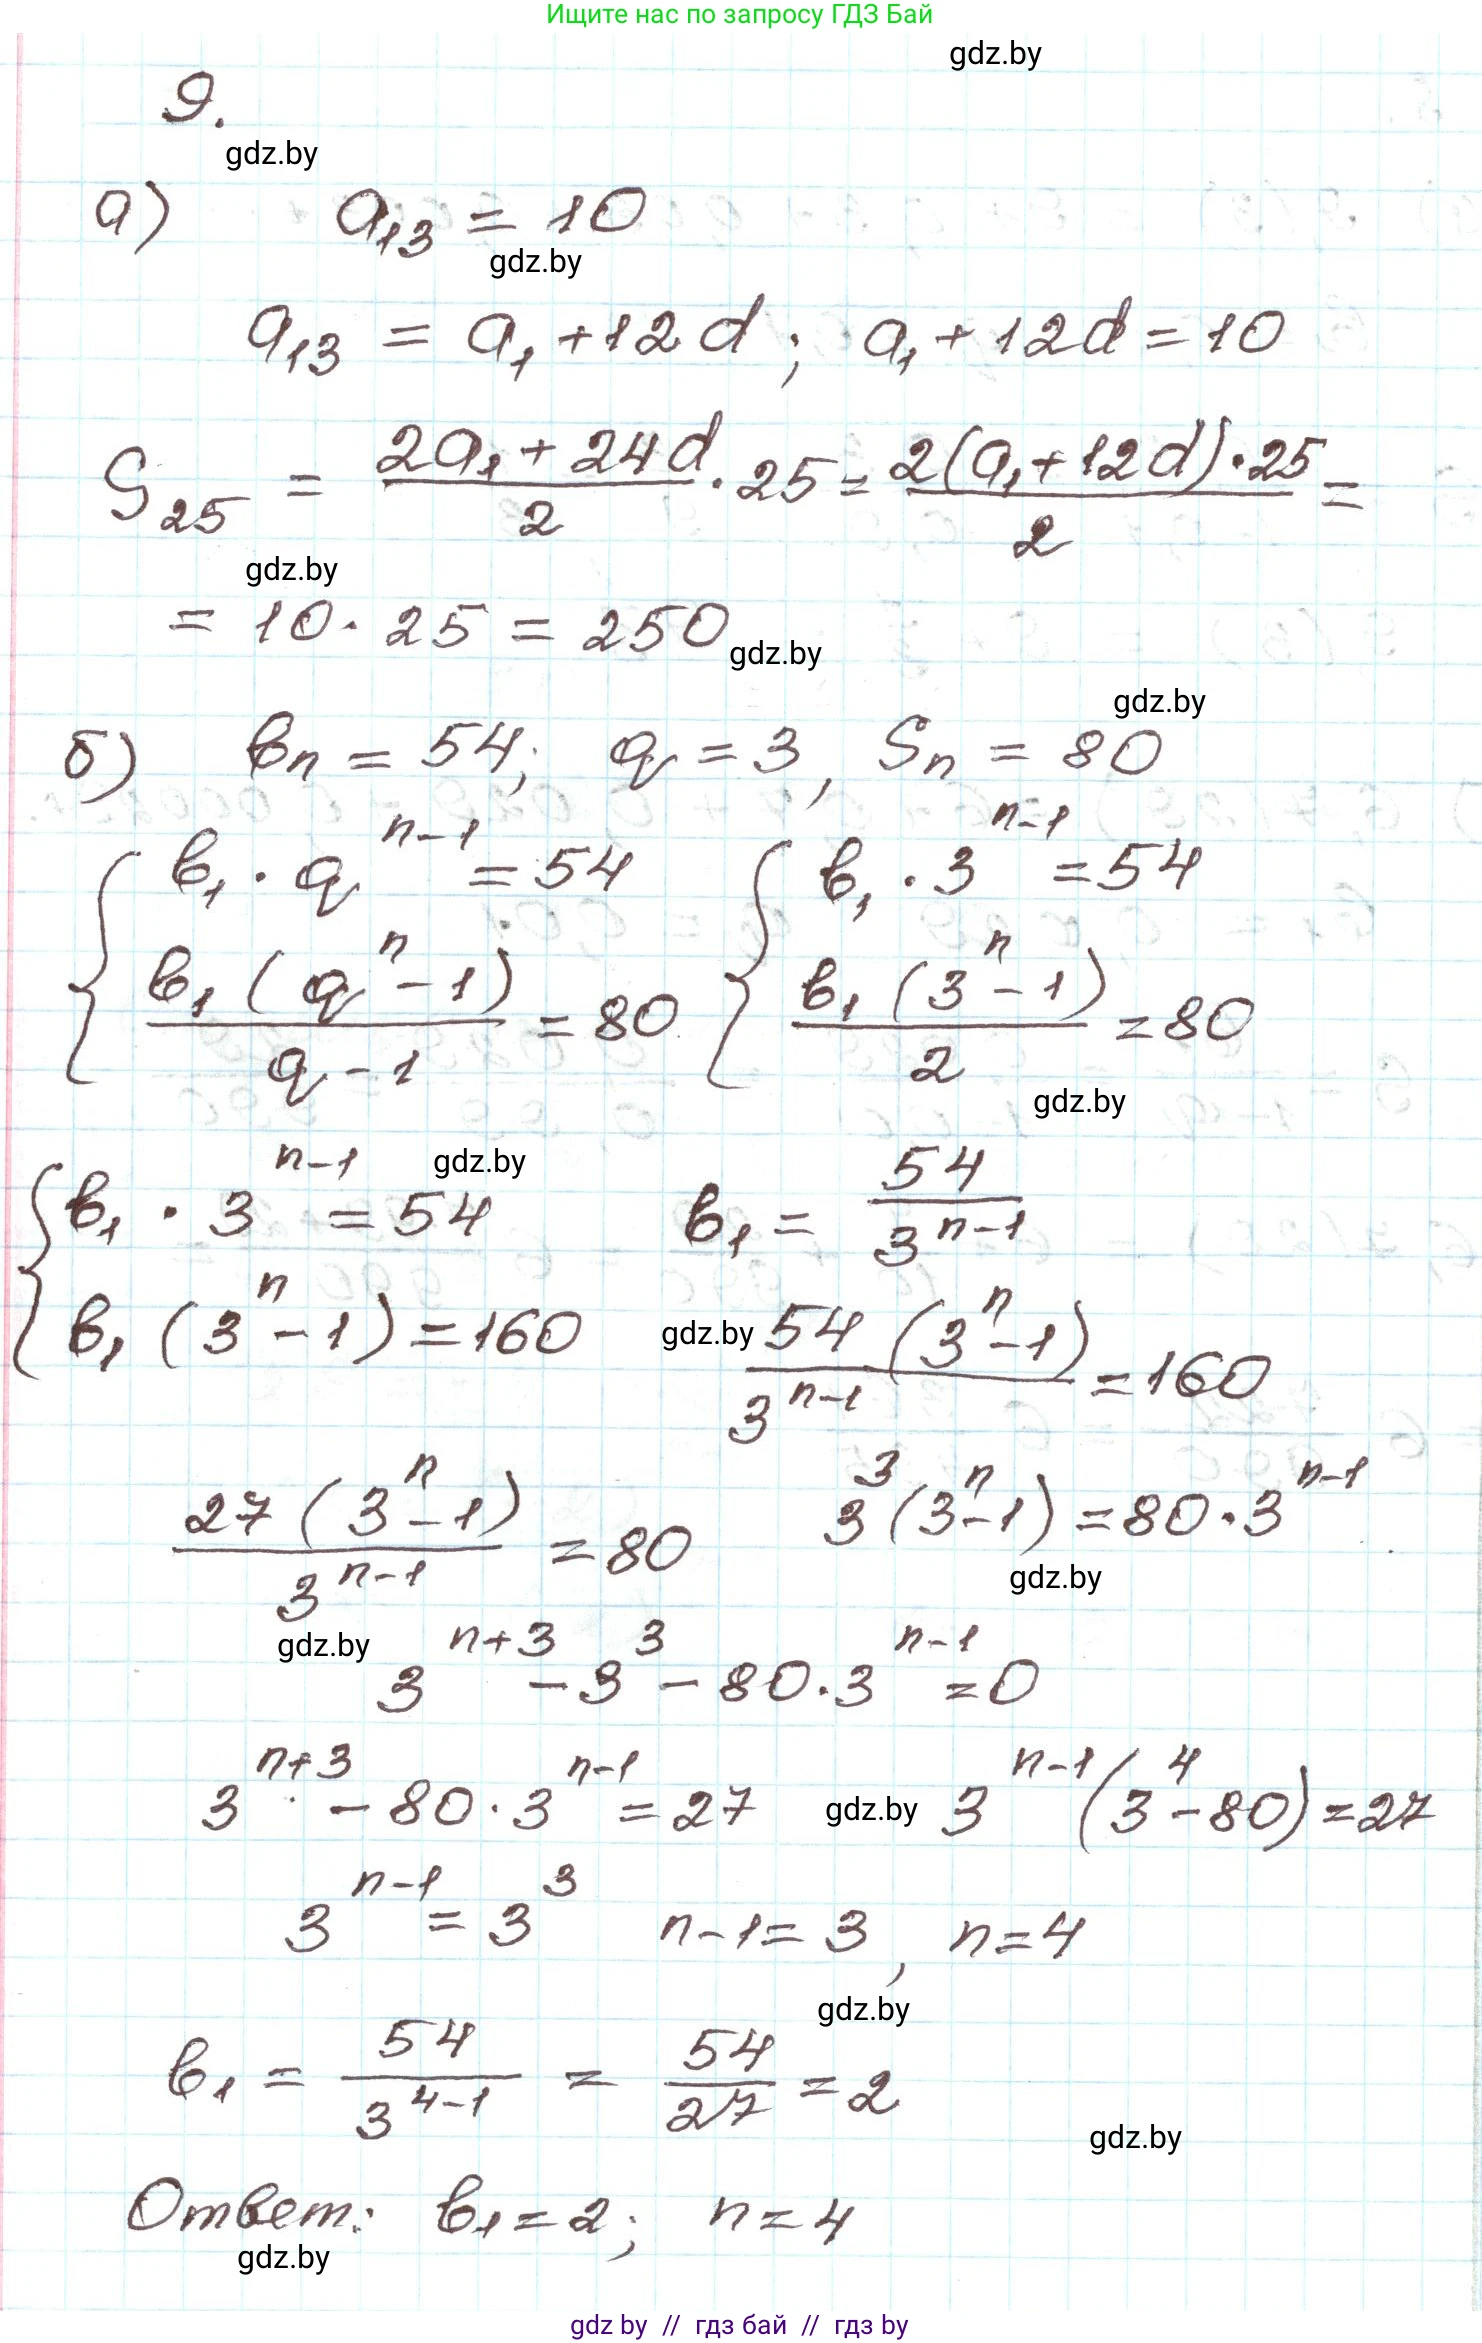 Ищите нас по запросу ГДЗ Бай
gdz.by
9.
gdz.by
а) a₁₃ = 10
gdz.by
a₁₃ = a₁ + 12d; a₁ + 12d = 10
S₂₅ = (2a₁ + 24d)/2 · 25 = (2(a₁ + 12d) · 25)/2 =
gdz.by
= 10 · 25 = 250
gdz.by
gdz.by
б) bₙ = 54; q = 3, Sₙ = 80
{ b₁ · qⁿ⁻¹ = 54 { b₁ · 3ⁿ⁻¹ = 54
b₁(qⁿ - 1)/(q - 1) = 80 b₁(3ⁿ - 1)/2 = 80
gdz.by
gdz.by
{ b₁ · 3ⁿ⁻¹ = 54 b₁ = 54/3ⁿ⁻¹
b₁(3ⁿ - 1) = 160 gdz.by 54(3ⁿ - 1)/3ⁿ⁻¹ = 160
27(3ⁿ - 1)/3ⁿ⁻¹ = 80 3³(3ⁿ - 1) = 80 · 3ⁿ⁻¹
gdz.by
gdz.by
3ⁿ⁺³ - 3³ - 80 · 3ⁿ⁻¹ = 0
3ⁿ⁺³ - 80 · 3ⁿ⁻¹ = 27 gdz.by 3ⁿ⁻¹(3⁴ - 80) = 27
3ⁿ⁻¹ = 3³ n - 1 = 3, n = 4
gdz.by
b₁ = 54/3⁴⁻¹ = 54/27 = 2
gdz.by
Ответ: b₁ = 2; n = 4
gdz.by
gdz by // гдз бай // гдз by